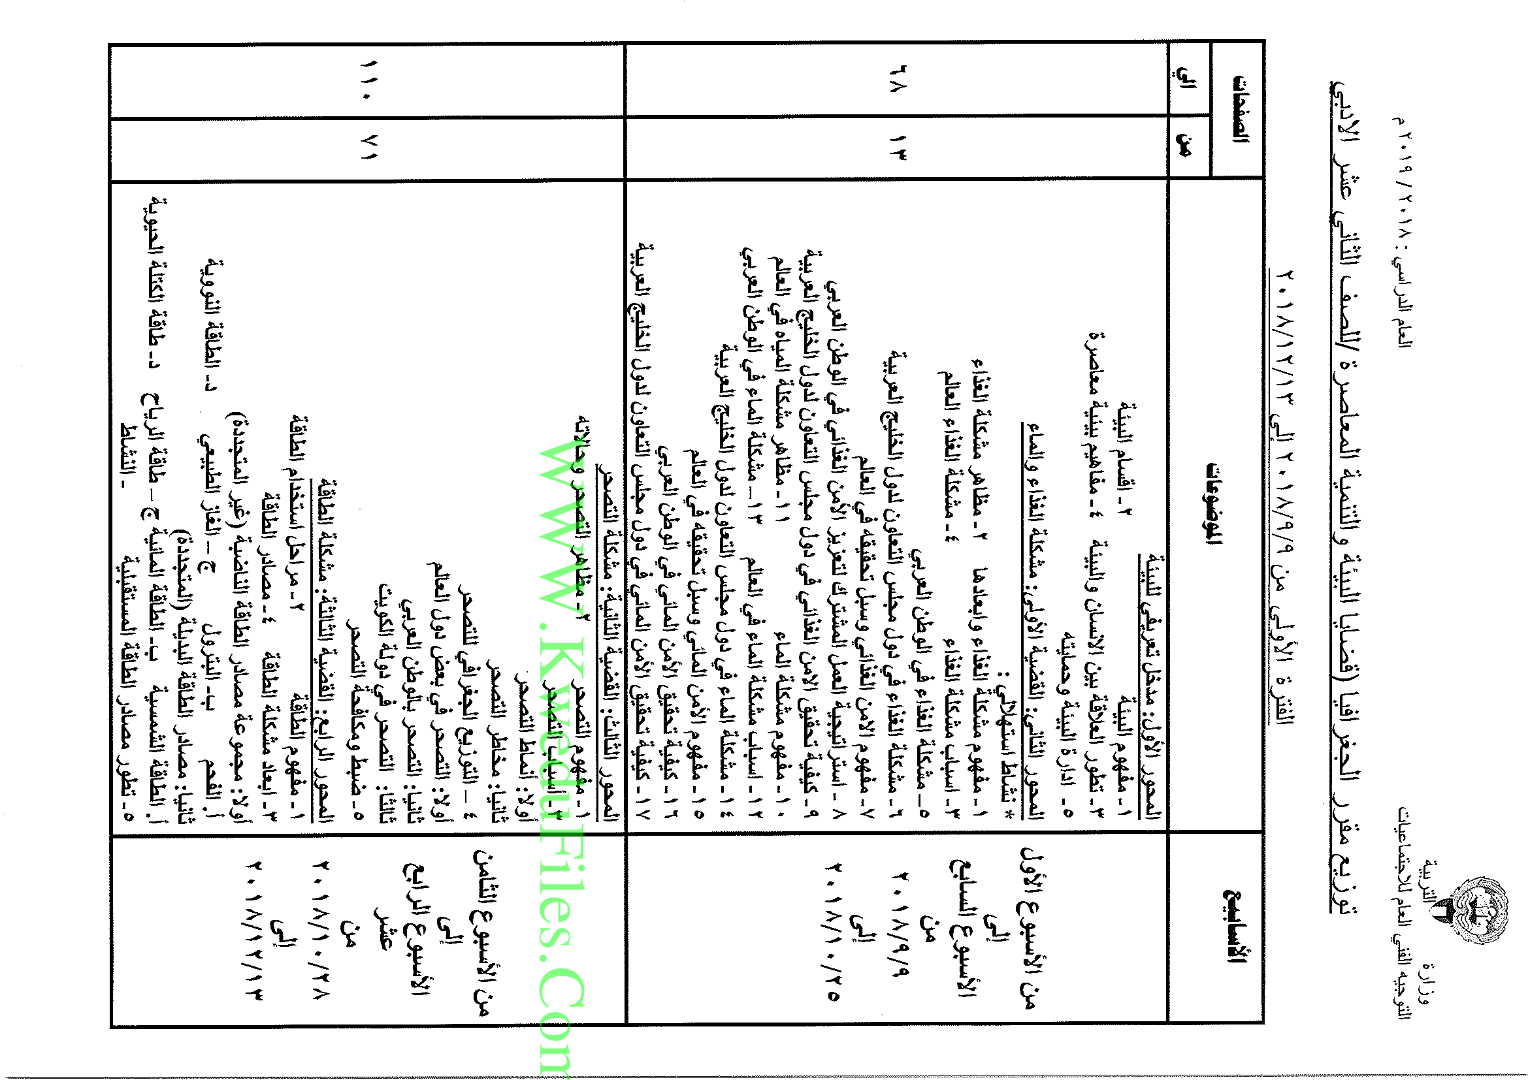 وزارة التربية
التوجيه الفني العام للاجتماعيات
العام الدراسي : ٢٠١٨ / ٢٠١٩ م
توزيع مقرر الجغرافيا (قضايا البيئة والتنمية المعاصرة /للصف الثاني عشر الادبي
الفترة الأولى من ٢٠١٨/٩/٩ الى ٢٠١٨/١٢/١٣
الأسابيع
الموضوعات
الصفحات
من
الي
من الأسبوع الأول
إلى
الأسبوع السابع
من
٢٠١٨/٩/٩
إلى
٢٠١٨/١٠/٢٥
المحور الأول: مدخل تعريفي للبيئة
١ـ مفهوم البيئة ٢ـ اقسام البيئة
٣ـ تطور العلاقة بين الانسان والبيئة ٤ـ مفاهيم بيئية معاصرة
٥ـ ادارة البيئة وحمايته
المحور الثاني: القضية الأولى: مشكلة الغذاء والماء
* نشاط استهلالي :
١ـ مفهوم مشكلة الغذاء وابعادها ٢ـ مظاهر مشكلة الغذاء
٣ـ اسباب مشكلة الغذاء ٤ـ مشكلة الغذاء العالم
٥ـ مشكلة الغذاء في الوطن العربي
٦ـ مشكلة الغذاء في دول مجلس التعاون لدول الخليج العربية
٧ـ مفهوم الامن الغذائي وسبل تحقيقه في العالم
٨ ـ استراتيجية العمل المشترك لتعزيز الأمن الغذائي في الوطن العربي
٩ـ كيفية تحقيق الامن الغذائي في دول مجلس التعاون لدول الخليج العربية
١٠ـ مفهوم مشكلة الماء ١١ـ مظاهر مشكلة المياه في العالم
١٢ـ اسباب مشكلة الماء في العالم ١٣ـ مشكلة الماء في الوطن العربي
١٤ـ مشكلة الماء في دول مجلس التعاون لدول الخليج العربية
١٥ـ مفهوم الأمن المائي وسبل تحقيقه في العالم
١٦ـ كيفية تحقيق الأمن المائي في الوطن العربي
١٧ـ كيفية تحقيق الأمن المائي في دول مجلس التعاون لدول الخليج العربية
١٣
٦٨
من الأسبوع الثامن
إلى
الأسبوع الرابع
عشر
من
٢٠١٨/١٠/٢٨
إلى
٢٠١٨/١٢/١٣
المحور الثالث: القضية الثانية: مشكلة التصحر
١ـ مفهوم التصحر ٢ـ مظاهر التصحر وحالاته
٣ـ أسباب التصحر
أولا: أنماط التصحر
ثانيا: مخاطر التصحر
٤ – التوزيع الجغرافي للتصحر
أولا: التصحر في بعض دول العالم
ثانيا: التصحر بالوطن العربي
ثالثا: التصحر في دولة الكويت
٥ـ ضبط ومكافحة التصحر
المحور الرابع: القضية الثالثة: مشكلة الطاقة
١ـ مفهوم الطاقة ٢ـ مراحل استخدام الطاقة
٣ـ ابعاد مشكلة الطاقة ٤ـ مصادر الطاقة
أولا: مجموعة مصادر الطاقة الناضبة (غير المتجددة)
أ. الفحم ب ـ البترول ج – الغاز الطبيعي د ـ الطاقة النووية
ثانيا: مصادر الطاقة البديلة (المتجددة)
أ. الطاقة الشمسية ب ـ الطاقة المائية ج – طاقة الرياح د ـ طاقة الكتلة الحيوية
٥ـ تطور مصادر الطاقة المستقبلية ـ النشاط
٧١
١١٠
WWW.KweduFiles.Com